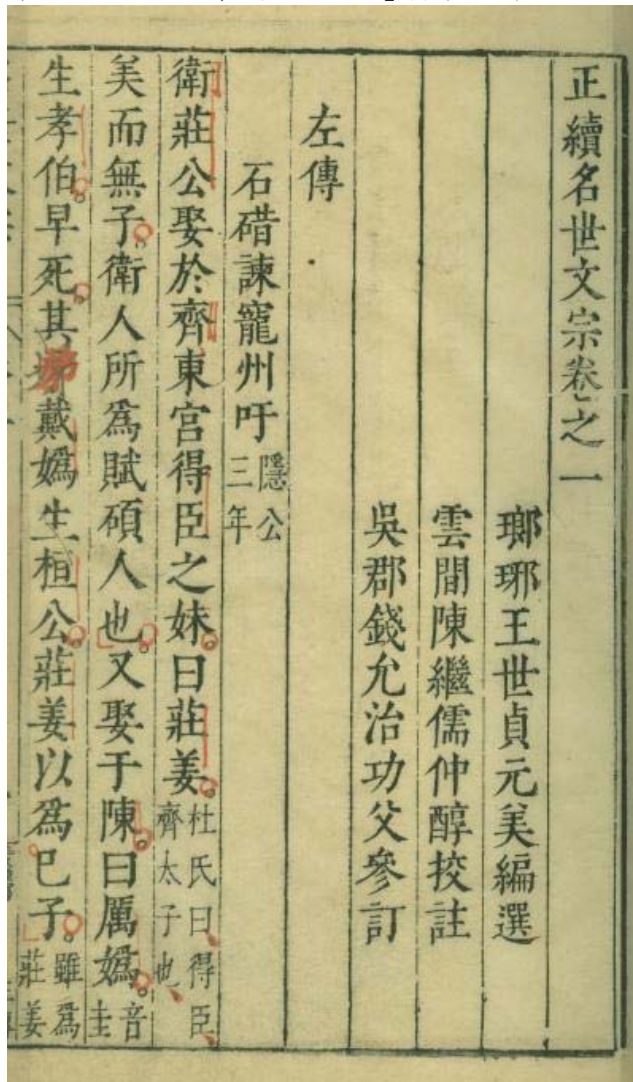 正續名世文宗卷之一
瑯琊王世貞元美編選
雲間陳繼儒仲醇挍註
吳郡錢允治功父參訂
左傳
石碏諫寵州吁隱公三年
衛莊公娶於齊東宮得臣之妹。曰莊姜。杜氏曰、得臣、齊太子也、
美而無子。衛人所爲賦碩人也。又娶于陳。曰厲嬀。音圭
生孝伯。早死。其娣戴嬀生桓公。莊姜以爲巳子。雖爲莊姜